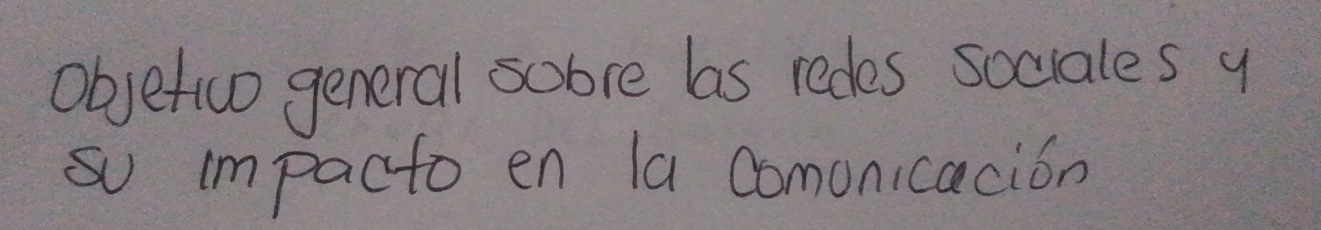 Objetivo general sobre las redes sociales y
su impacto en la comunicación